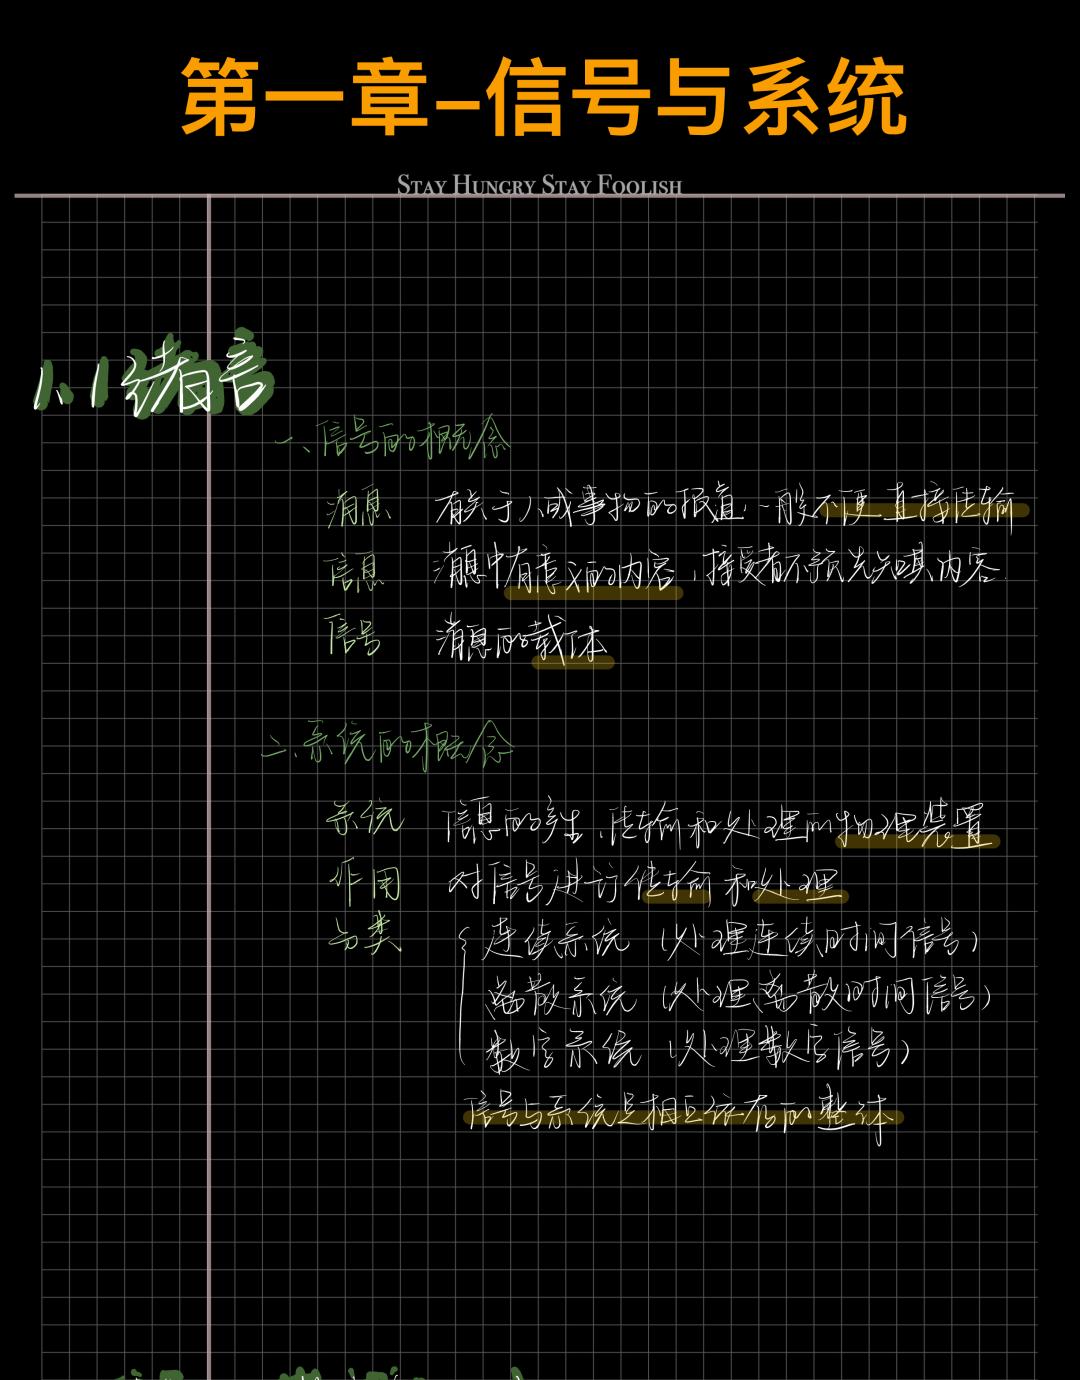 第一章-信号与系统
STAY HUNGRY STAY FOOLISH
1.1绪言
一、信号的概念
消息 有关于人或事物的报道,一般不便直接传输
信息 消息中有意义的内容,接受者不预先知其内容.
信号 消息的载体
二、系统的概念
系统 信息的产生、传输和处理的物理装置
作用 对信号进行传输和处理
分类 { 连续系统 (处理连续时间信号)
离散系统 (处理离散时间信号)
数字系统 (处理数字信号)
信号与系统是相互依存的整体